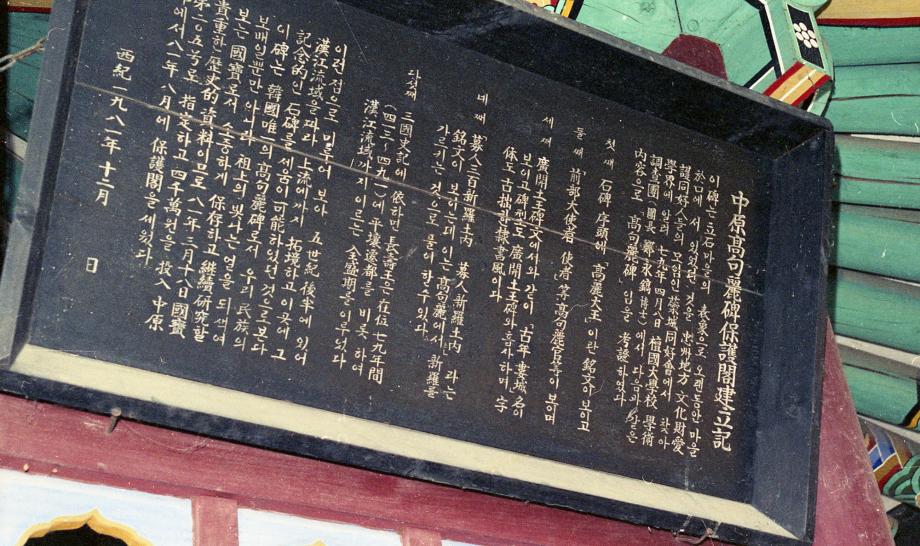 中原高句麗碑保護閣建立記
이 碑는 立石마을의 表象으로 오랜동안 마을
於口에 서 있었던 것을 忠州地方 文化財愛
護同好人들의 모임인 蘂城同好會에서 찾아
學界에 알려 七九年四月八日 檀國大學校 學術
調査團(團長 鄭永鎬博士)에서 다음과 같은
內容으로 高句麗碑 임을 考證하였다
첫째 石碑 序頭에 高麗大王 이란 銘文이 보이고
둘째 前部大使者 使者 等 高句麗官等이 보이며
세째 廣開土王碑文에서와 같이 古牟婁城 名이
보이고 碑型도 廣開土王碑와 유사하며 字
体도 古拙한 隸書風이다
네째 募人三百 新羅土內 募人新羅土內 라는
銘文이 보이는데 이는 高句麗에서 新羅를
가르키는 것으로 풀이할 수 있다
다섯째 三國史記에 依하면 長壽王은 在位七九年間
(四一三~四九一)에 平壤遷都를 비롯하여
漢江流域까지 이르는 全盛期를 이루었다
이런 점으로 미루어 보아 五世紀 後半에 있어
漢江流域을 따라 上流에까지 拓境하고 이곳에 그
記念的인 石碑를 세움이 可能하였던 것으로 본다
이 碑는 韓國唯一의 高句麗碑로서 우리 民族의
보배일뿐만 아니라 祖上의 빛나는 얼을 되새겨
보는 國寶로서 소중하게 保存하고 繼續硏究할
貴重한 歷史的 資料이므로 八一年三月十八日 國寶
第二〇五号로 指定하고 四千萬원을 投入 中原
에서 八一年 八月에 保護閣을 세웠다
西紀一九八一年 十二月 日